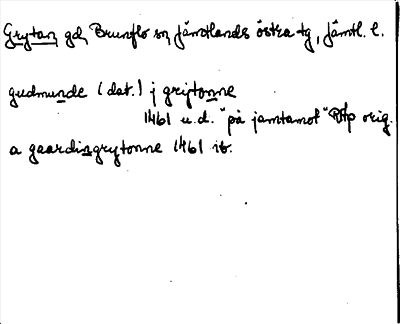 Grytan gd, Brunflo sn Jämtlands östra tg, Jämtl. l.
gudmunde (dat.) j grijtonne
1461 u.d. "på jamtamot" RAp orig.
a gaardin grytonne 1461 ib.